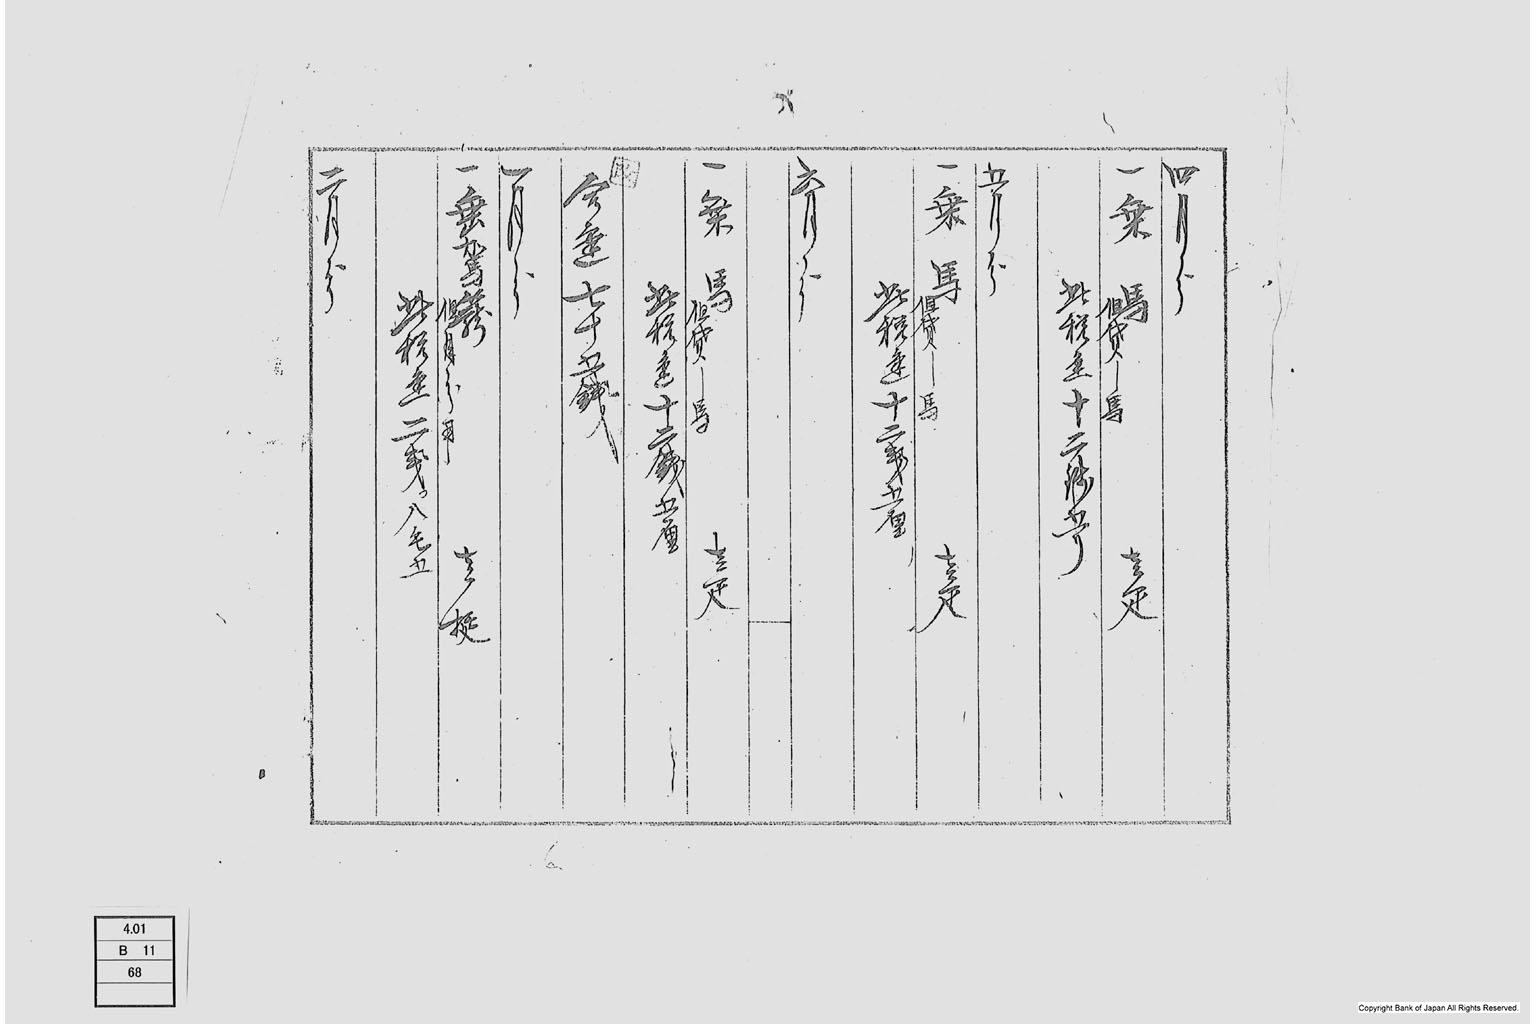 四月分
一乗馬 壱疋
但貸シ馬
此税金十二銭五厘
五月分
一乗馬 壱疋
但貸シ馬
此税金十二銭五厘
六月分
一乗馬 壱疋
但貸シ馬
此税金十二銭五厘
合金七十五銭
一月分
一乗駕籠 壱挺
但自分用
此税金二銭〇八毛五
二月分
4.01
B 11
68
Copyright Bank of Japan All Rights Reserved.